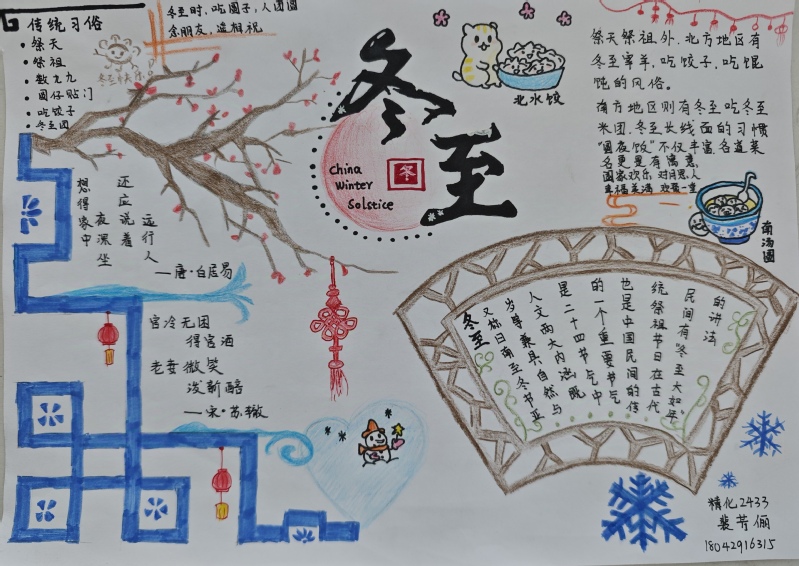 传统习俗
• 祭天
• 祭祖
• 数九九
• 圆仔贴门
• 吃饺子
• 冬至团
冬至快乐
冬至时,吃圆子,人团圆
念朋友,遥相祝
冬至
China
Winter
Solstice
冬
北水饺
祭天祭祖外,北方地区有
冬至宰羊,吃饺子,吃馄
饨的风俗。
南方地区则有冬至吃冬至
米团、冬至长线面的习惯
"圆夜饭"不仅丰富,各道菜
名更是有寓意
南汤圆
想得家中
夜深坐
还应说着
远行人
—唐·白居易
宫冷无团
得官酒
老妻微笑
泼新醅
—宋·苏辙
冬至
又称日南至、冬节、亚
岁等,兼具自然与
人文两大内涵,既
是二十四节气中
的一个重要节气
也是中国民间的传
统祭祖节日,在古代
民间有"冬至大如年"
的讲法
精化2433
裴芳俪
18042916315